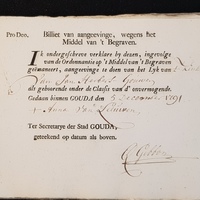 Pro Deo, Billiet van aangeevinge, wegens het
Middel van 't Begraven.
Ik ondergeschreeve verklare by desen, ingevolge
van de Ordonnantie op 't Middel van 't Begraven
geëmaneert, aangeevinge te doen van het Lyk van
van Jan
als gehoorende onder de Classis van d' onvermogende.
Gedaan binnen GOUDA den 5 December 1791
Anna van
Ter Secretarye der Stad GOUDA,
geteekend op datum als boven.